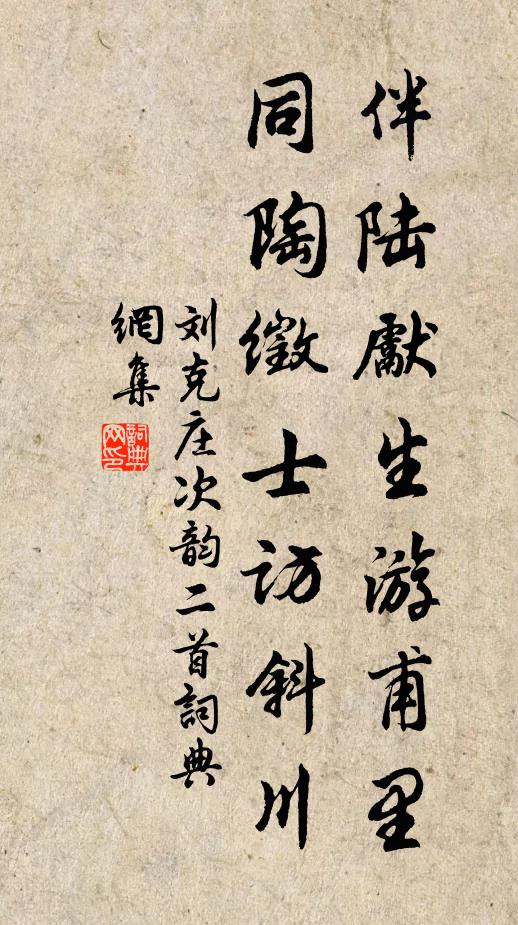 伴陆獻生游甫里
同陶徵士访斜川
刘克庄次韵二首詞典
網集
詞典
网印